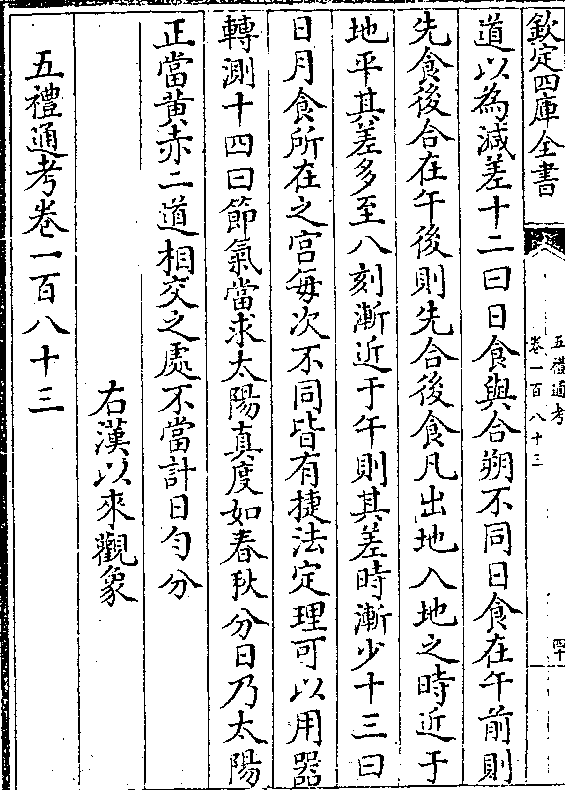 欽定四庫全書
五禮通考
卷一百八十三
四十
道以為減差十二曰日食與合朔不同日食在午前則
先食後合在午後則先合後食凡出地入地之時近于
地平其差多至八刻漸近于午則其差時漸少十三曰
日月食所在之宫每次不同皆有捷法定理可以用器
轉測十四曰節氣當求太陽真度如春秋分日乃太陽
正當黄赤二道相交之處不當計日勻分
右漢以來觀象
五禮通考卷一百八十三